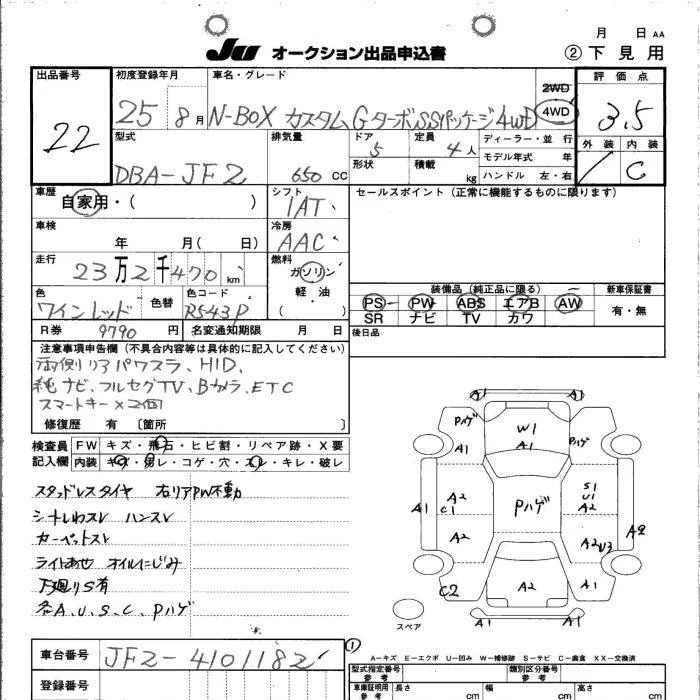 月 日 AA
JU オークション出品申込書 ② 下見用
出品番号 初度登録年月 車名・グレード 2WD 評価点
22 25 8月 N-BOX カスタムGターボSSパッケージ4WD 4WD 3.5
型式 排気量 ドア 定員 ディーラー・並行 外装 内装
DBA-JF2 650 CC 5 4人 モデル年式 年 C
形状 積載 kg ハンドル 左・右
車歴 シフト セールスポイント(正常に機能するものに限ります)
自家用・( ) IAT
車検 冷房
年 月( 日) AAC
走行 燃料
23万2千470km ガソリン
軽・油
( )
色 色替 色コード 装備品(純正品に限る) 新車保証書
ワインレッド R543P PS PW ABS エアB AW 有・無
SR ナビ TV カワ
R券 9790円 名変通知期限 月 日 後日品
注意事項申告欄(不具合内容等は具体的に記入してください)
両側リアパワスラ、HID、
純ナビ、フルセグTV、Bカメラ、ETC
スマートキー×2個
修復歴 有〔箇所 〕
検査員記入欄 FW キズ・飛石・ヒビ割・リペア跡・X要
内装 キズ・汚レ・コゲ・穴・スレ・キレ・破レ
スタッドレスタイヤ 右リアPW不動
シートしわスレ ハンスレ
カーペットスレ
ライトあせ オイルにじみ
下廻りS有
各A、U、S、C、Pハゲ
A1 A1
Pハゲ W1 Pハゲ
A1 A1 A1
A2 S1
C1 Pハゲ U1
A1 A2 A2
A2 A2U3
C2 A2 A1
A1 A1
スペア
車台番号 JF2-4101182
登録番号
①
A-キズ E-エクボ U-凹み W-補修跡 S-サビ C-腐食 XX-交換済
型式指定番号 参考 類別区分番号 参考
車庫証明用 参考 長さ cm 幅 cm 高さ cm